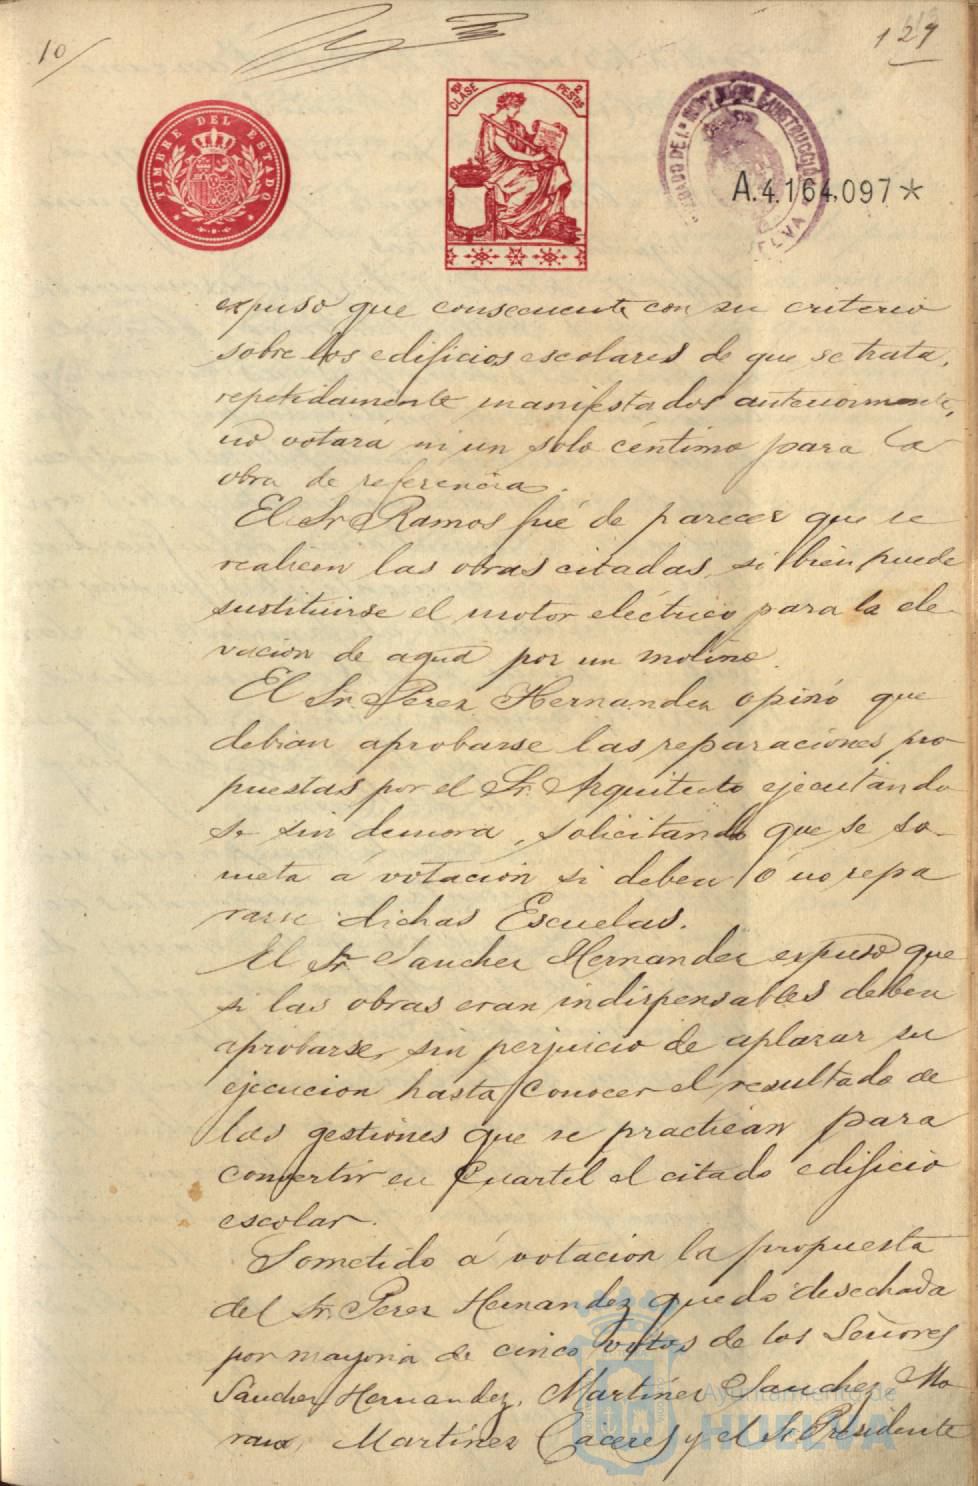 10
127
TIMBRE DEL ESTADO
10ª CLASE
2 PESTAS
A.4.164,097*
expuso que consecuente con su criterio
sobre los edificios escolares de que se trata,
repetidamente manifestados anteriormente,
no votará ni un solo céntimo para la
obra de referencia.
El Sr. Ramos fué de parecer que se
realicen las obras citadas, si bien puede
sustituirse el motor eléctrico para la ele-
vación de agua por un molino.
El Sr. Perez Hernandez opinó que
debian aprobarse las reparaciones pro
puestas por el Sr. Arquitecto ejecutando
se sin demora, solicitando que se so-
meta á votación si deben ó no repa
rarse dichas Escuelas.
El Sr. Sanchez Hernandez expuso que
si las obras eran indispensables deben
aprobarse, sin perjuicio de aplazar su
ejecucion hasta conocer el resultado de
las gestiones que se practican para
convertir en Cuartel el citado edificio
escolar.
Sometido á votación la propuesta
del Sr. Perez Hernandez quedo desechada
por mayoria de cinco votos de los Señores
Sanchez Hernandez, Martinez Sanchez, Mo
Martinez Caceres y el Sr. Presidente
Ayuntamiento de
HUELVA